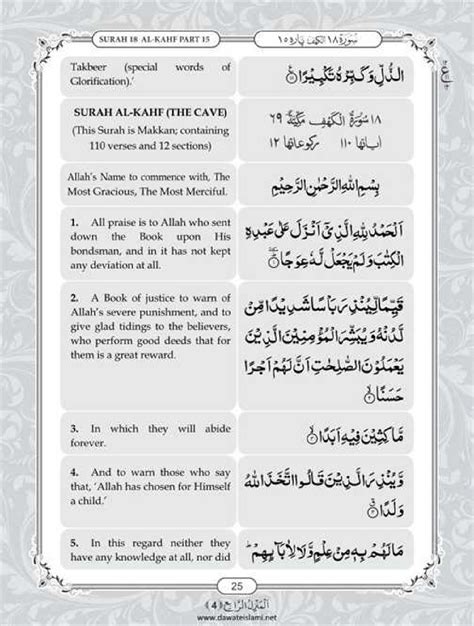 SURAH 18 AL-KAHF PART 15
سُوْرَة ١٨ الكهف پاره ١٥
Takbeer (special words of
Glorification).'
الذُّلِّ وَكَبِّرْهُ تَكْبِيْرًا
SURAH AL-KAHF (THE CAVE)
(This Surah is Makkan; containing
110 verses and 12 sections)
١٨ سُوْرَةُ الْكَهْفِ مَكِّيَّةٌ ٦٩
اٰياتها ١١٠ ركوعاتها ١٢
Allah's Name to commence with, The
Most Gracious, The Most Merciful.
بِسْمِ اللهِ الرَّحْمٰنِ الرَّحِيْمِ
1. All praise is to Allah who sent
down the Book upon His
bondsman, and in it has not kept
any deviation at all.
اَلْحَمْدُ لِلّٰهِ الَّذِيْۤ اَنْزَلَ عَلٰى عَبْدِهِ
الْكِتٰبَ وَلَمْ يَجْعَلْ لَّهٗ عِوَجًا
2. A Book of justice to warn of
Allah's severe punishment, and to
give glad tidings to the believers,
who perform good deeds that for
them is a great reward.
قَيِّمًا لِّيُنْذِرَ بَاْسًا شَدِيْدًا مِّنْ
لَّدُنْهُ وَيُبَشِّرَ الْمُؤْمِنِيْنَ الَّذِيْنَ
يَعْمَلُوْنَ الصّٰلِحٰتِ اَنَّ لَهُمْ اَجْرًا
حَسَنًا
3. In which they will abide
forever.
مَّاكِثِيْنَ فِيْهِ اَبَدًا
4. And to warn those who say
that, 'Allah has chosen for Himself
a child.'
وَّيُنْذِرَ الَّذِيْنَ قَالُوا اتَّخَذَ اللهُ
وَلَدًا
5. In this regard neither they
have any knowledge at all, nor did
مَا لَهُمْ بِهٖ مِنْ عِلْمٍ وَّلَا لِاٰبَآىِٕهِمْ ؕ
25
اَلْمَنْزِلُ الرَّابِع ﴿4﴾
www.dawateislami.net